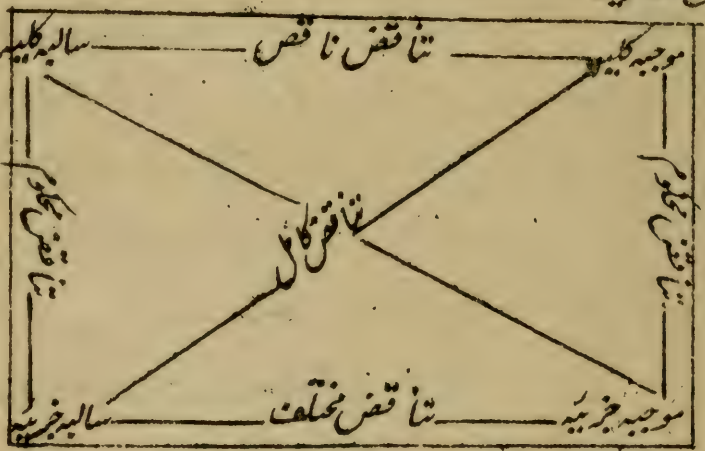 موجبہ کلیہ تناقض ناقص سالبہ کلیہ
تناقض محکوم تناقض کامل تناقض محکوم
موجبہ جزئیہ تناقض مختلف سالبہ جزئیہ